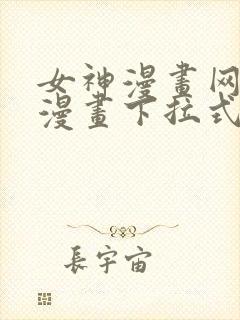 女神漫畫网
漫畫下拉式
長宇宙